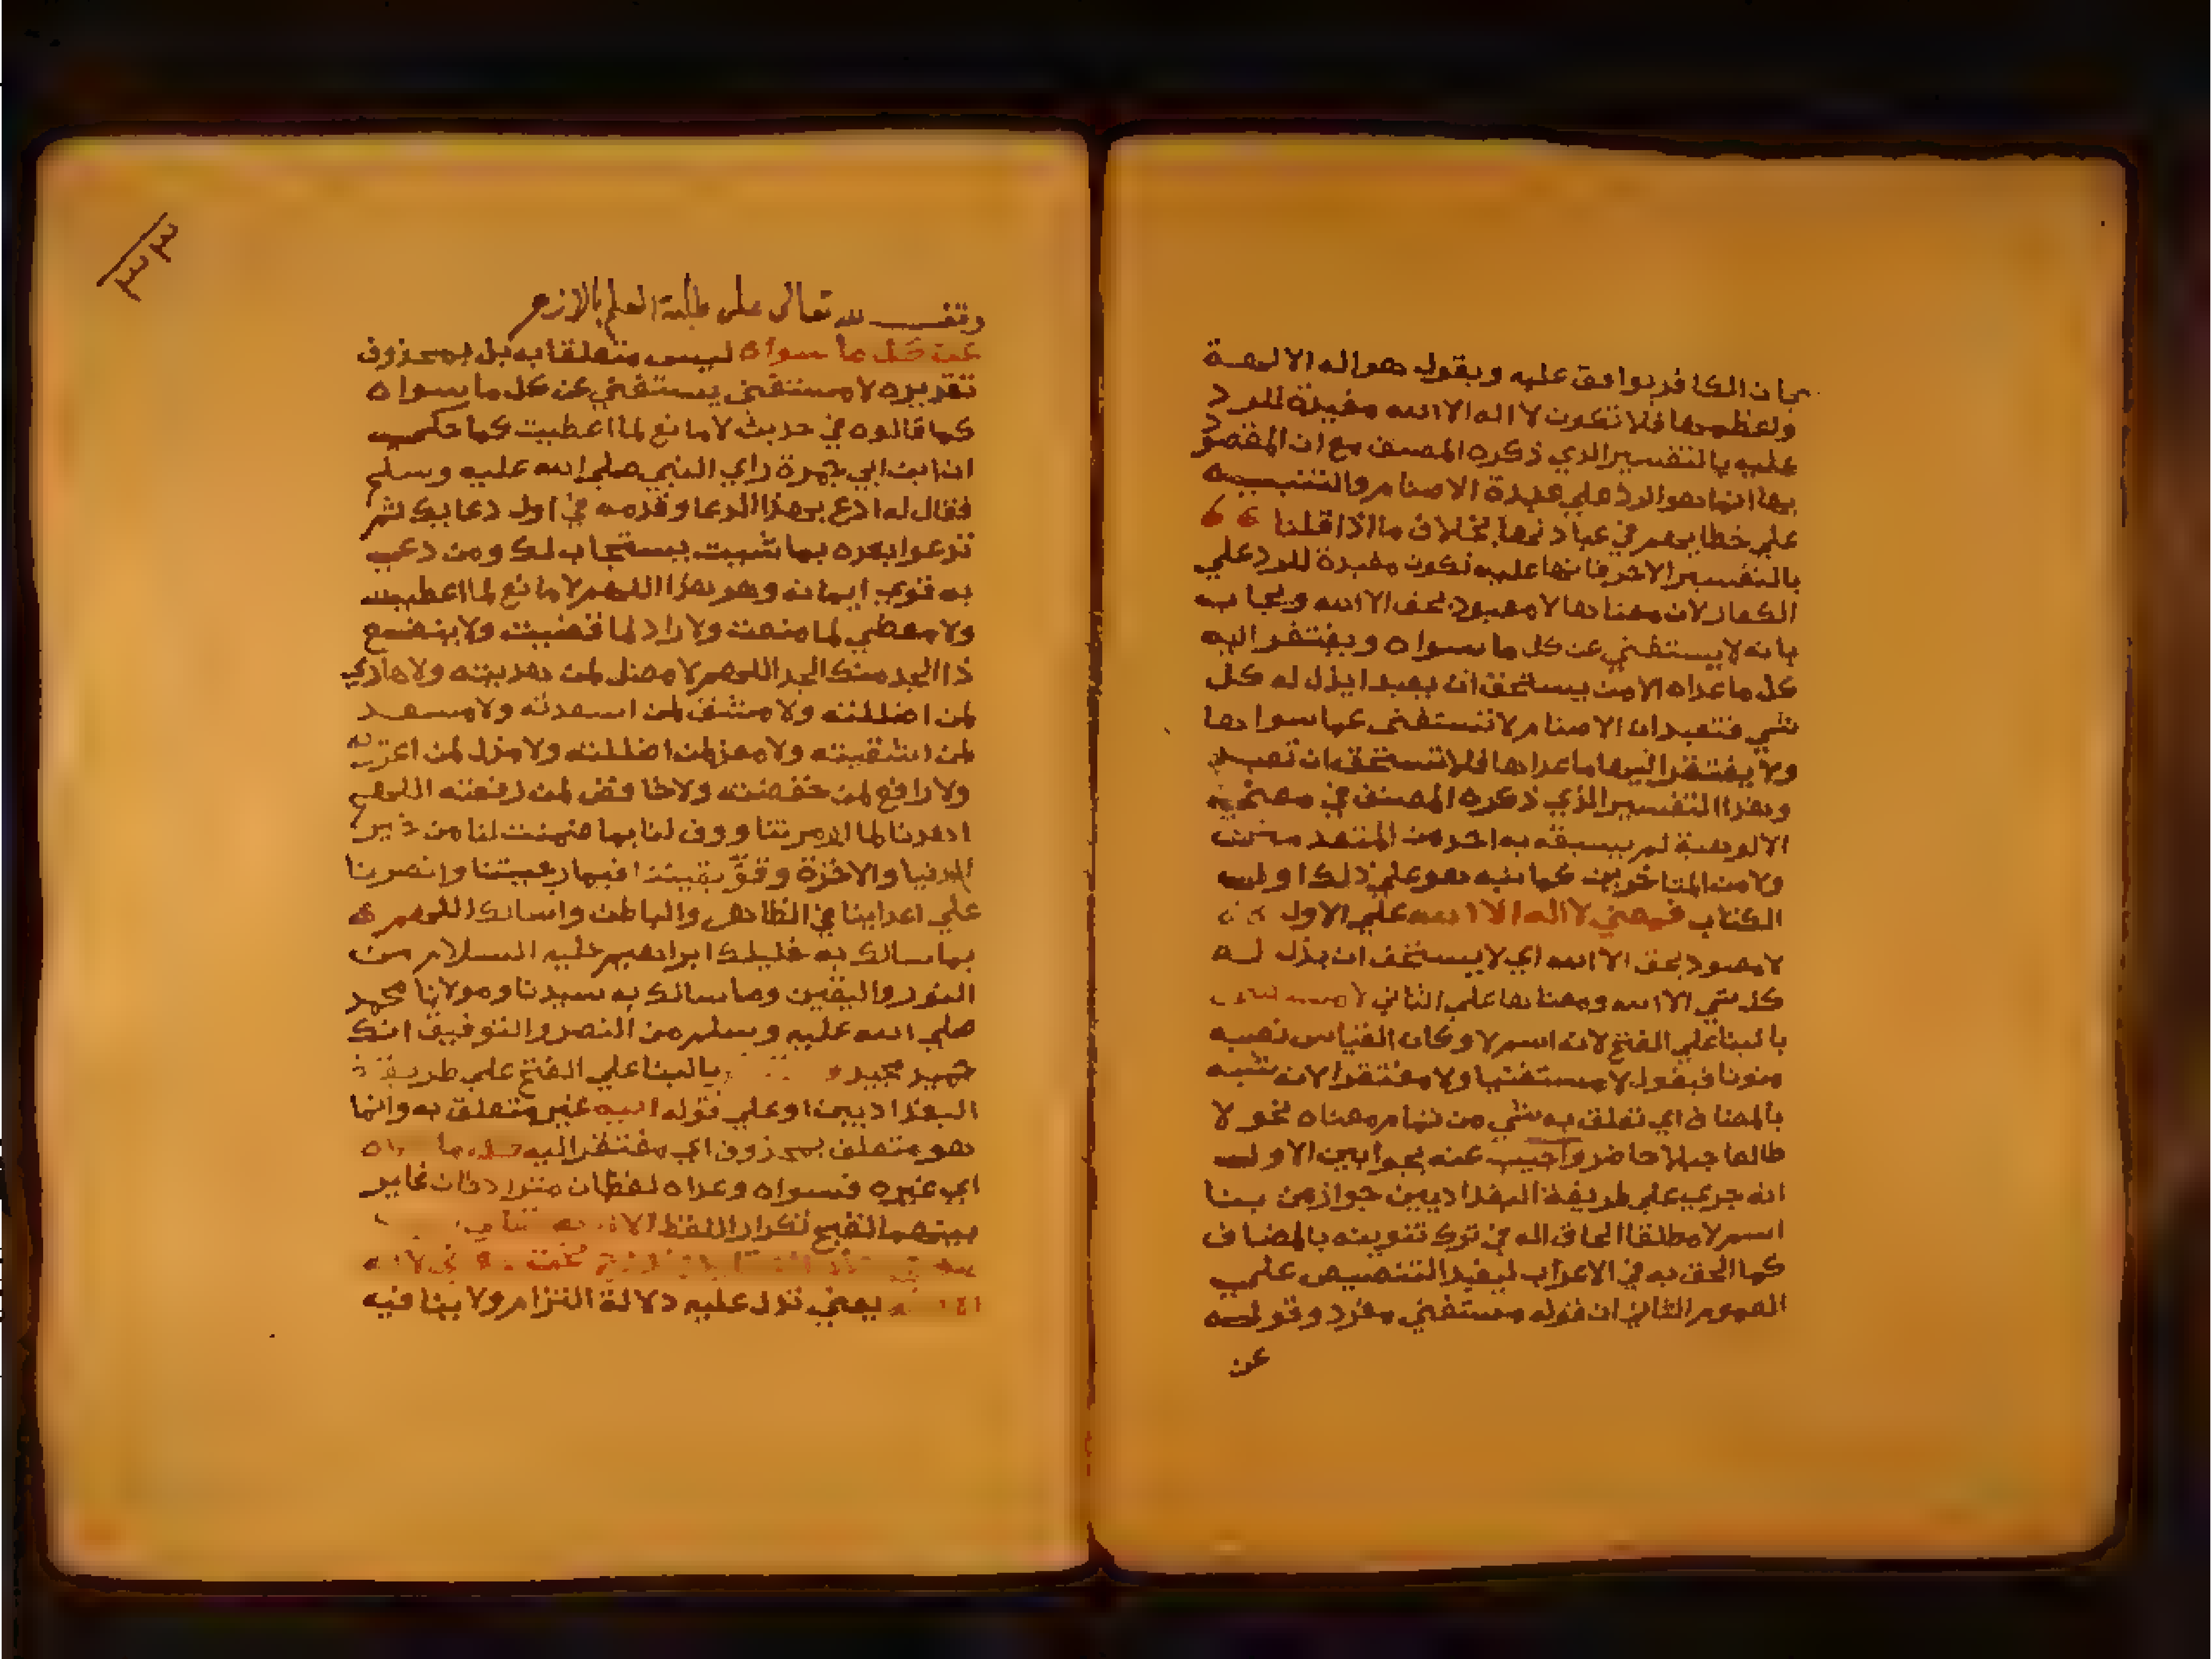 بان الكافر يوافق عليه ويقول هو اله الالهة
ولعظمها فلا تكون لا اله الا الله مفيدة للرد
عليه بالتفسير الذي ذكره المصنف مع ان المقصود
بها انما هو الرد علي عبدة الاصنام والتنبيه
علي خطايهم في عبادتها بخلاف ما اذا قلنا
بالتفسير الاخر فانها عليه تكون مفيدة للرد علي
الكفار لان معناها لا معبود بحق الا الله ويجاب
بانه لا يستغني عن كل ما سواه ويفتقر اليه
كل ما عداه الا من يستحق ان يعبد او يذل له كل
شي فتفيد ان الاصنام لا تستغني عما سواها
ولا يفتقر اليها ما عداها فلا تستحق ان تعبد
وهذا التفسير الذي ذكره المصنف في معني
الالوهية لم يسبقه به احد من المتقدمين
ولا من المتاخرين كما نبه هو علي ذلك اول
الكتاب فمعني لا اله الا الله علي الاول
لا معبود بحق الا الله اي لا يستحق ان يذل له
كل شي الا الله ومعناها علي الثاني لا مستغني
بالبنا علي الفتح لانه اسم لا وكان القياس نصبه
منونا فيقول لا مستغنيا ولا مفتقرا لانه شبه
بالمضاف اي تعلق به شي من تمام معناه نحو لا
طالعا جبلا حاضر واجيب عنه بجوابين الاول
انه جري علي طريقة البغداديين جواز من بنا
اسم لا مطلقا الحاقا له في ترك تنوينه بالمضاف
كما الحق به في الاعراب ليفيد التنصيص علي
العموم الثاني ان قوله مستغني مفرد وقوله
عن
٣٣
وقف لله تعالى على طلبة العلم بالازهر
عن كل ما سواه ليس متعلقا به بل بمحذوف
تقديره لا مستغني يستغني عن كل ما سواه
كما قالوه في حديث لا مانع لما اعطيت كما حكي
ان ابن ابي جمرة راي النبي صلي الله عليه وسلم
فقال له ادع بهذا الدعا وقدمه في اول دعايك ثم
تدعوا بعده بما شيت يستجاب لك ومن دعي
به قوي ايمانه وهو هذا اللهم لا مانع لما اعطيت
ولا معطي لما منعت ولا راد لما قضيت ولا ينفع
ذا الجد منك الجد اللهم لا مضل لمن هديته ولا هادي
لمن اضللته ولا مشقي لمن اسعدته ولا مسعد
لمن اشقيته ولا معز لمن اضللته ولا مذل لمن اعززته
ولا رافع لمن خفضته ولا خافض لمن رفعته اللهم
اهدنا لما امرتنا ووف لنا بما ضمنت لنا من خير
الدنيا والاخرة وقو يقيننا فيما رغبتنا وانصرنا
علي اعداينا في الظاهر والباطن واسالك اللهم
بما سالك به خليلك ابراهيم عليه السلام من
النور واليقين وما سالك به سيدنا ومولانا محمد
صلي الله عليه وسلم من النصر والتوفيق انك
حميد مجيد بالبنا علي الفتح علي طريقة
البغداديين او علي قوله اليه غير متعلق به وانما
هو متعلق بمحذوف اي مفتقر اليه كل ما
اي غيره فسواه وعداه لفظان مترادفان غاير
بينهما لقبح تكرار اللفظ
يعني تدل عليه دلالة التزام ولا ينافيه